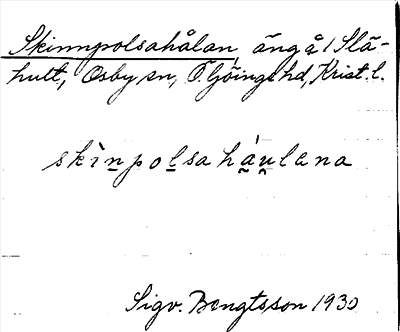 Skinnpolsahålan, äng å/Slä-
hult, Osby sn, Ö. Göinge hd, Krist. l.
skìn̲po̲lsa há̰ṵlana
Sigv. Bengtsson 1930